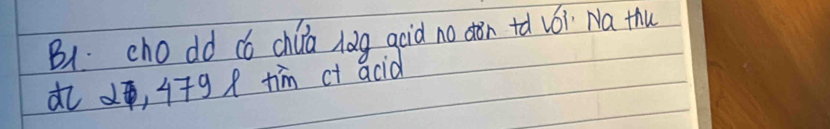 B1. cho dd có chứa 12g acid no đơn td với Na thu
đc 2,479 l tìm ct acid